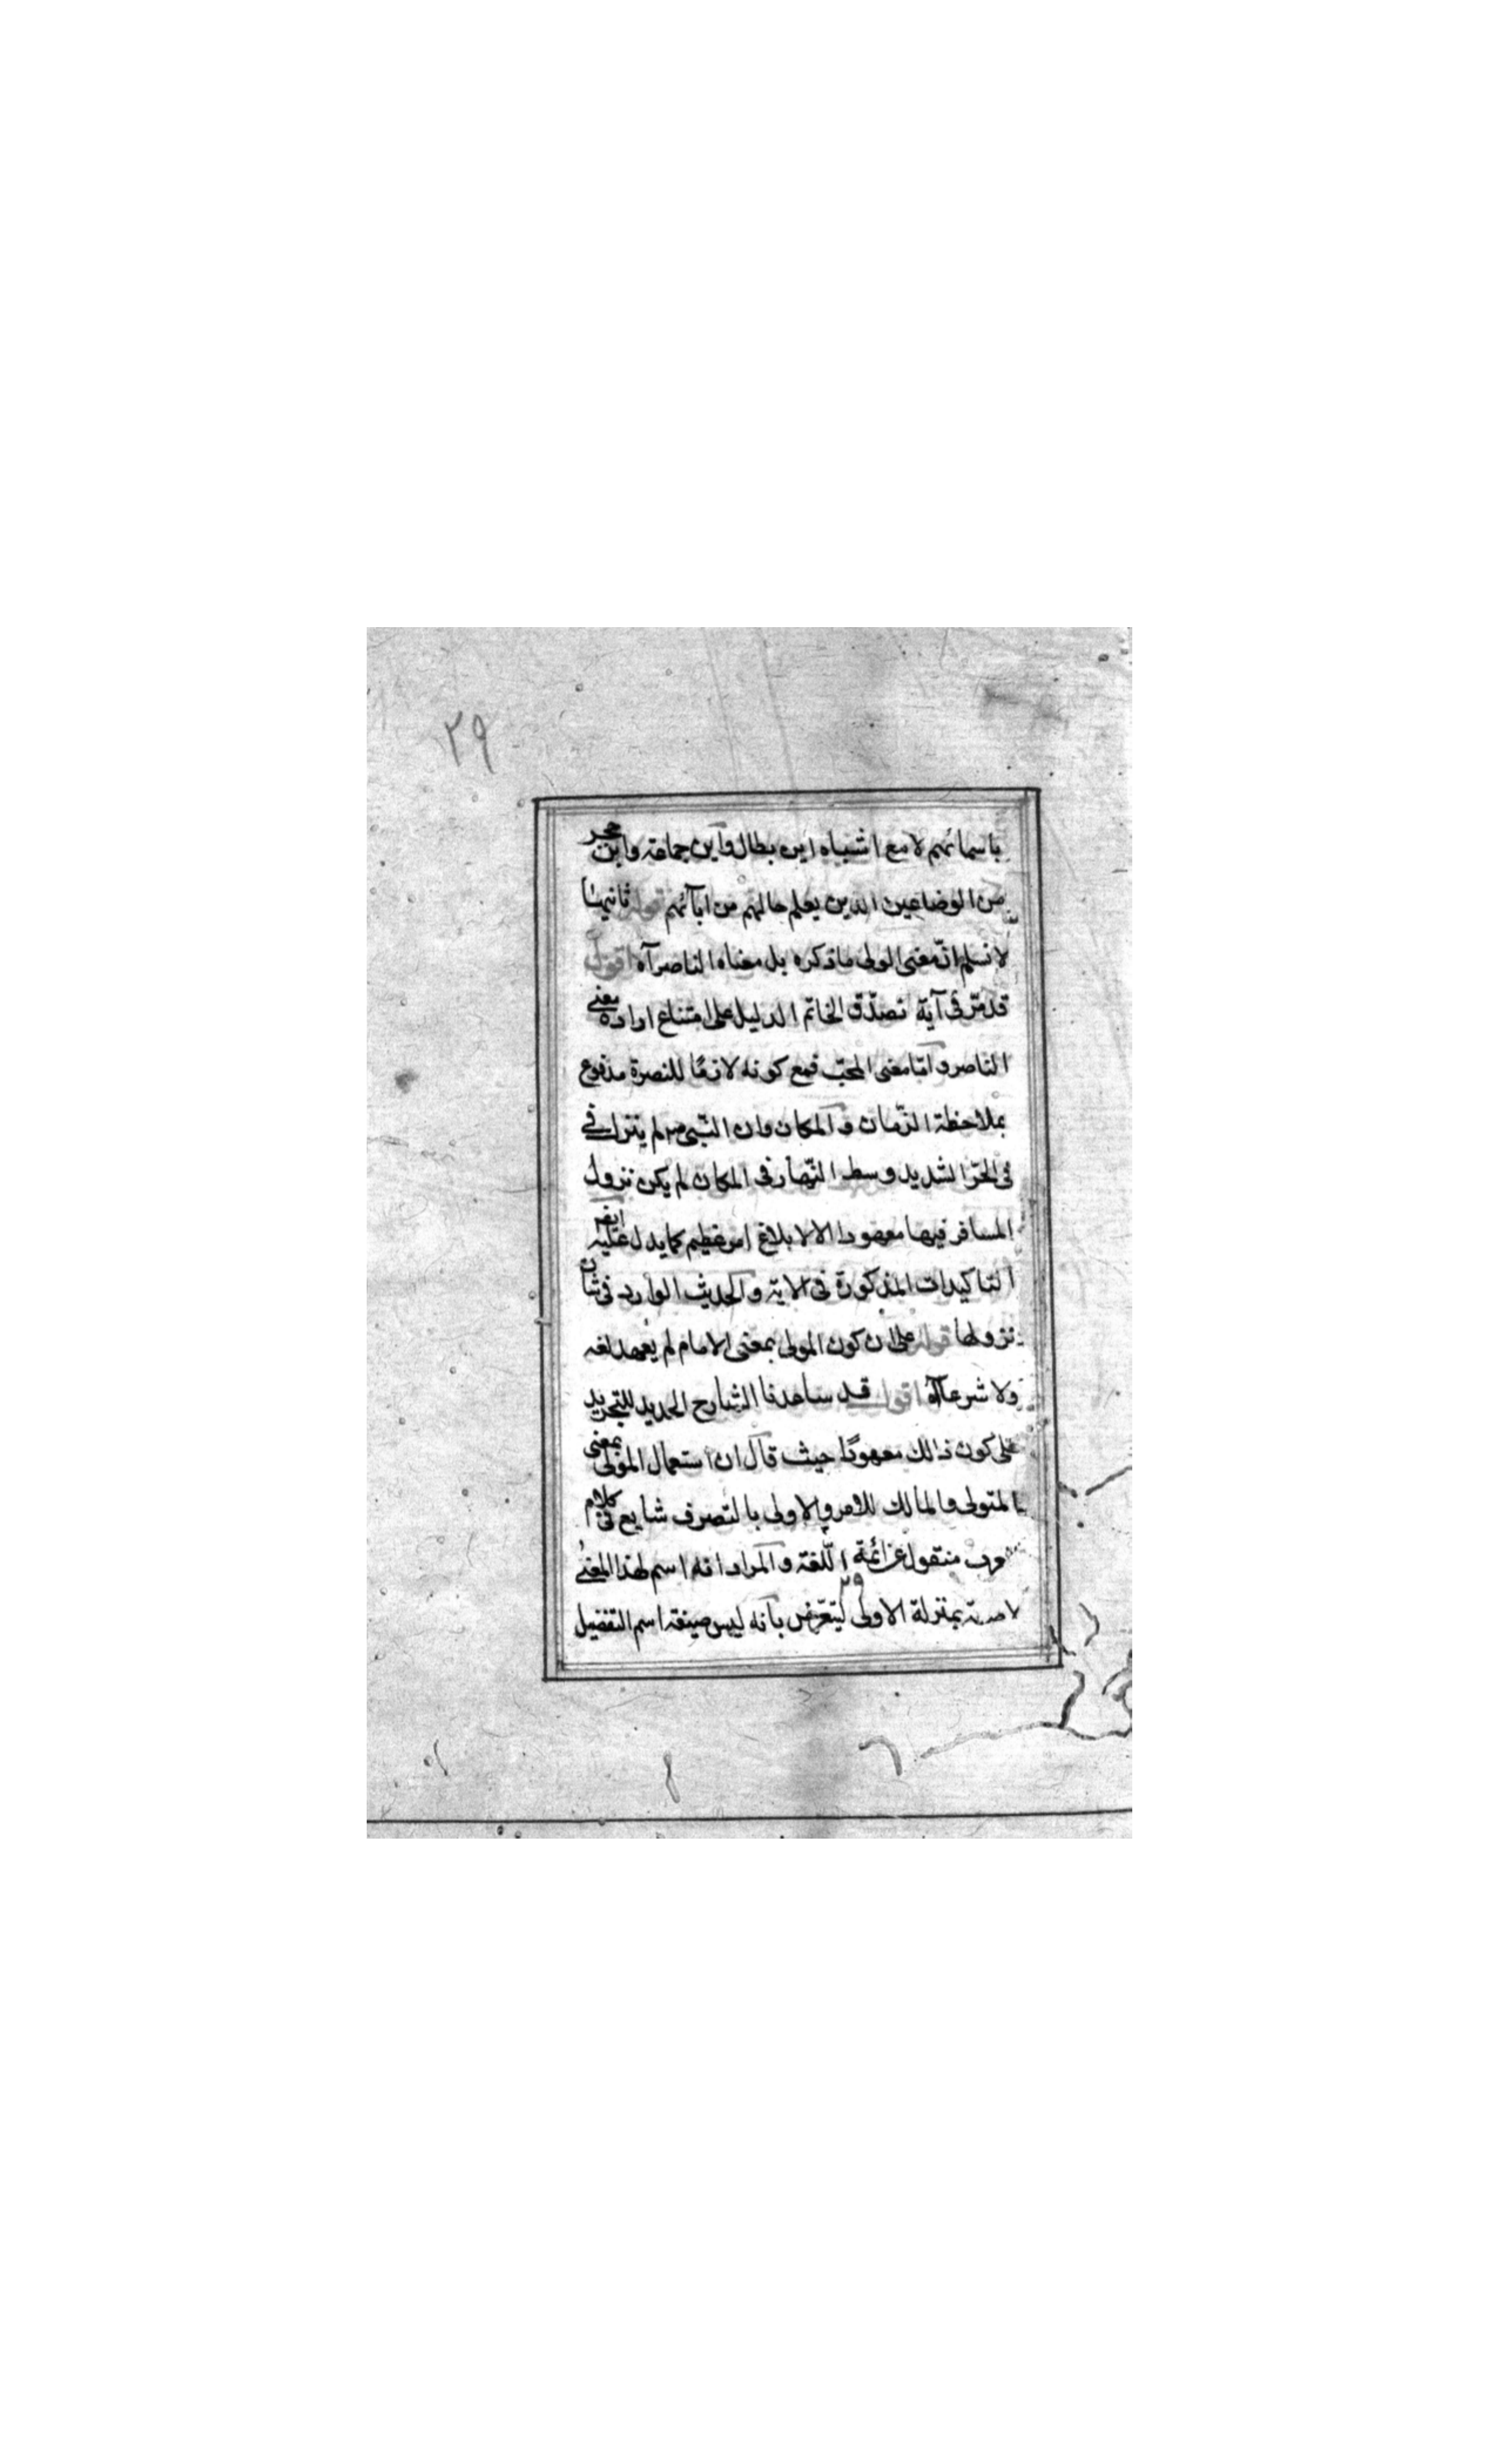 ٢٩
باسمائهم لا مع اشباه ابن بطال وابن جماعة وابن حجر
من الوضاعين الذين يعلم حالهم من ابآئهم قوله ثانيهما
لا نسلم انّ معنى الولى ما ذكره بل معناه الناصر آه اقول
قد مرّ فى آية تصدّق الخاتم الدليل على امتناع اراده معنى
الناصر و امّا معنى المحبّ فمع كونه لازمًا للنصرة مدفوع
بملاحظة الزّمان و المكان وان النّبى ص لم ينزل فى
فى الحرّ الشديد وسط النّهار فى المكان لم يكن نزول
المسافر فيها معهودا الا لابلاغ امر عظيم كما يدل عليه ايض
التاكيدات المذكورة فى الاية و الحديث الوارد فى شان
نزولها قوله على ان كون المولى بمعنى الامام لم يعهد لغه
ولا شرعا آه اقول قد ساعدنا الشارح الجديد للتجريد
على كون ذالك معهودًا حيث قال ان استعمال المولى بمعنى
المتولى و المالك للامر و الاولى بالتصرف شايع فى كلام
العرب منقول عن ائمّة اللّغة و المراد انه اسم لهذا المعنى
لا صفة بمنزلة الاولى ليتعرّض بانه ليس صيغة اسم التفضيل
٢٩